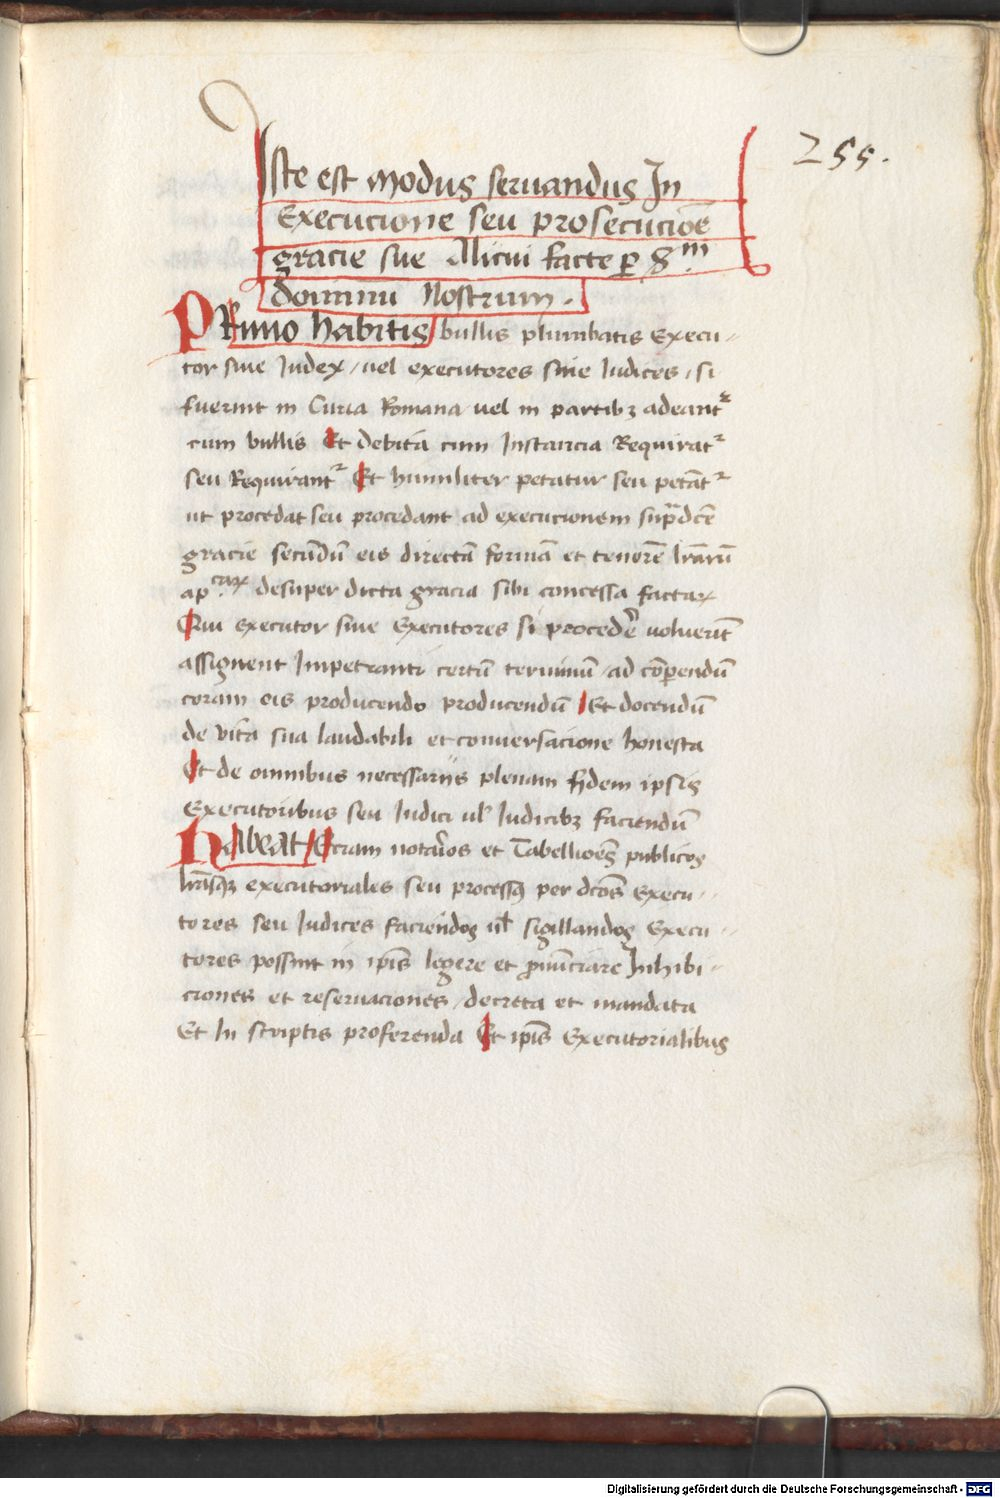 255.
Iste est modus seruandus In
Execucione seu prosecucioē
gracie sue Alicui facte ꝑ S.ᵐ
dominū Nostrum.
PRimo habitis bullis plumbatis Execu-
tor siue Iudex / uel executores siue Iudices, si
fuerint in Curia Romana uel in partibꝫ adeantᵉ
cum bullis Et debita cum Instancia Requiratᵉ
seu Requirantᵉ Et humiliter petatur seu petātᵉ
ut procedat seu procedant ad execucionem supᵃdcē
gracie secūdū eis directā formā et tenorē lrārū
ap.ᶜᵃꝝ desuper dicta gracia sibi concessa factaꝝ
Qui executor siue Executores si procedēͬ uoluerīt
assignent Impetranti certū terminū / ad cōꝑendū
coram eis producendo producendū Et docendū
de vita sua laudabili et conuersacione honesta
Et de omnibus necessariis plenam fidem ipsis
Executoribus seu Iudici ul' Iudicibꝫ faciendū
Habeat Eciam notarios et Tabellioēs publicos
lrāsqꝫ executoriales seu processꝰ per dcōs Execu-
tores seu Iudices faciendos ul' sigillandos Execu-
tores possint in ipīs legere et pronūciare Inhibi-
ciones et reseruaciones, decreta et mandata
Et In scriptis proferenda Et ipīs Executorialibus
Digitalisierung gefördert durch die Deutsche Forschungsgemeinschaft - DFG